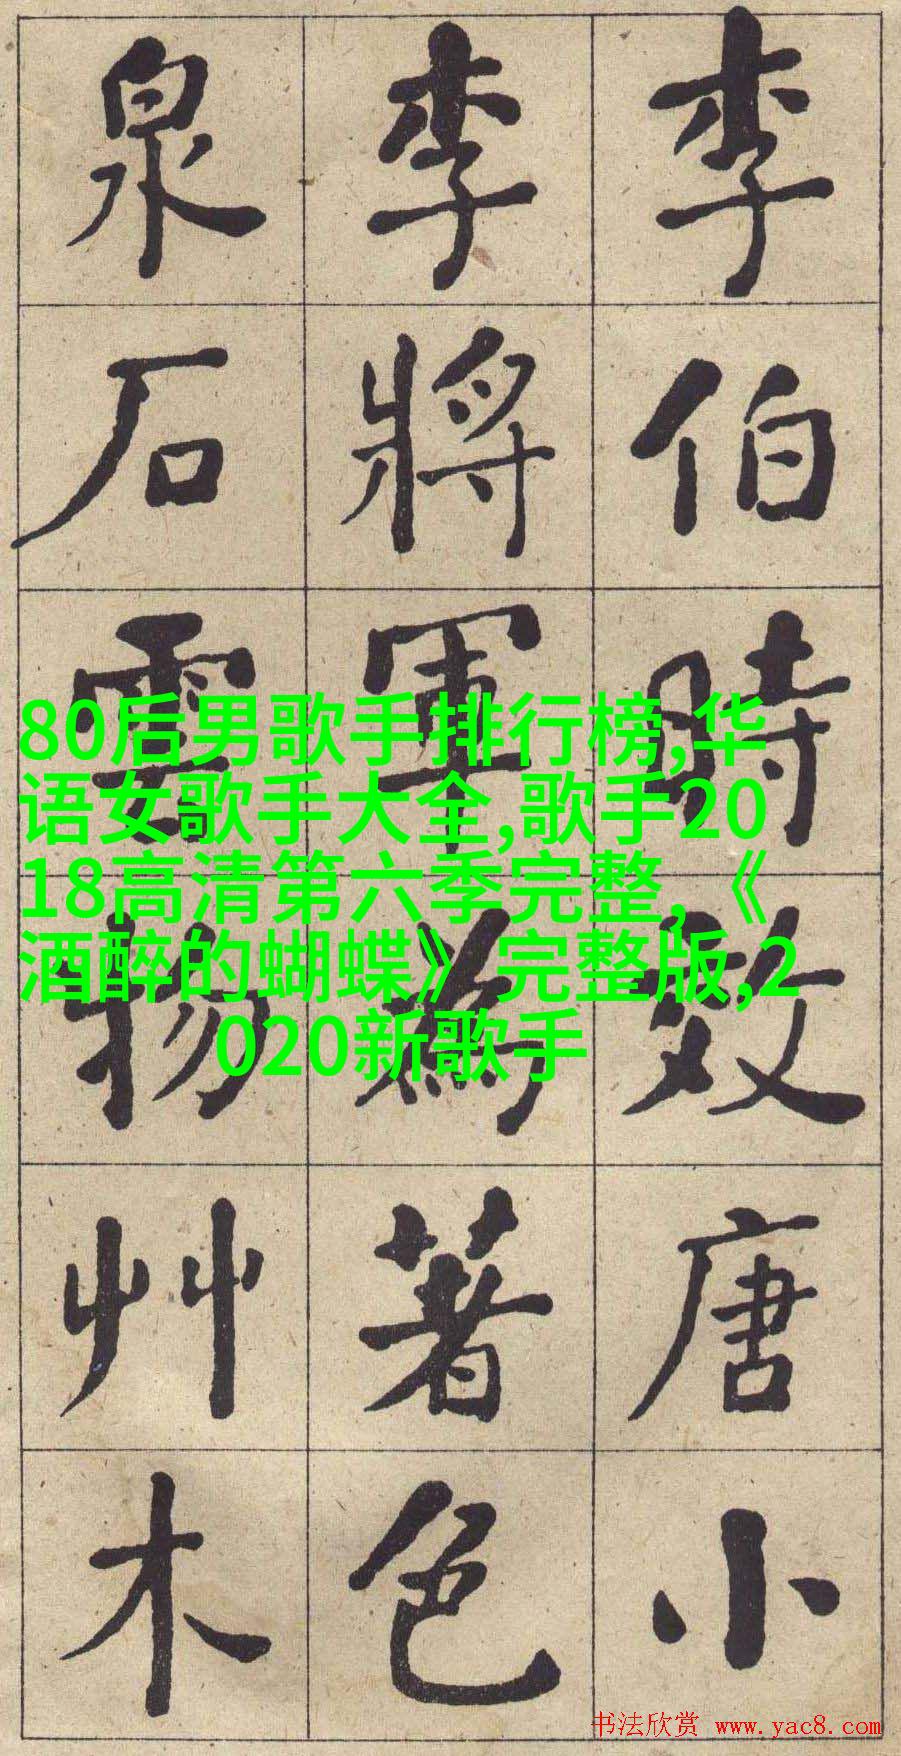 李伯時效唐小
李將軍為著色
泉石雲物艸木
80后男歌手排行榜,华
语女歌手大全,歌手20
18高清第六季完整,《
酒醉的蝴蝶》完整版,2
020新歌手
书法欣赏 www.yac8.com